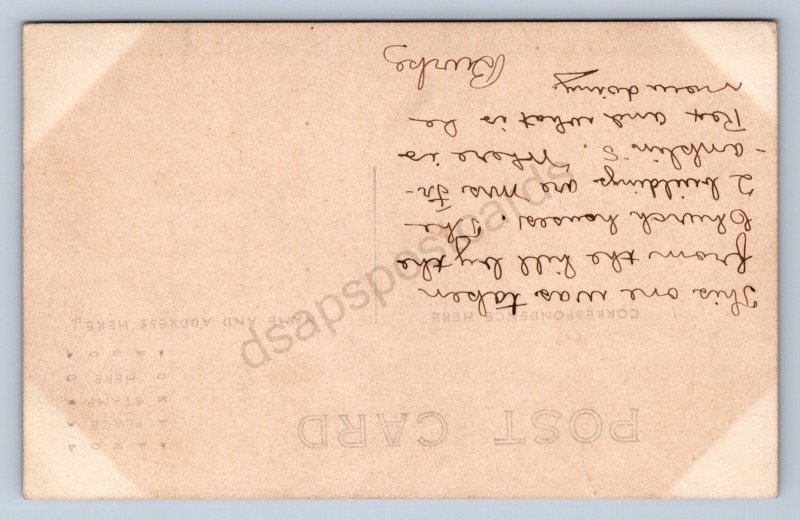 POST CARD
CORRESPONDENCE HERE
NAME AND ADDRESS HERE
PLACE
STAMP
HERE
This one was taken
from the hill by the
Church houses. The
2 buildings are Mrs Fr-
-anklin's. Where is
Rex and what is he
now doing
Burke
dsapspostcards